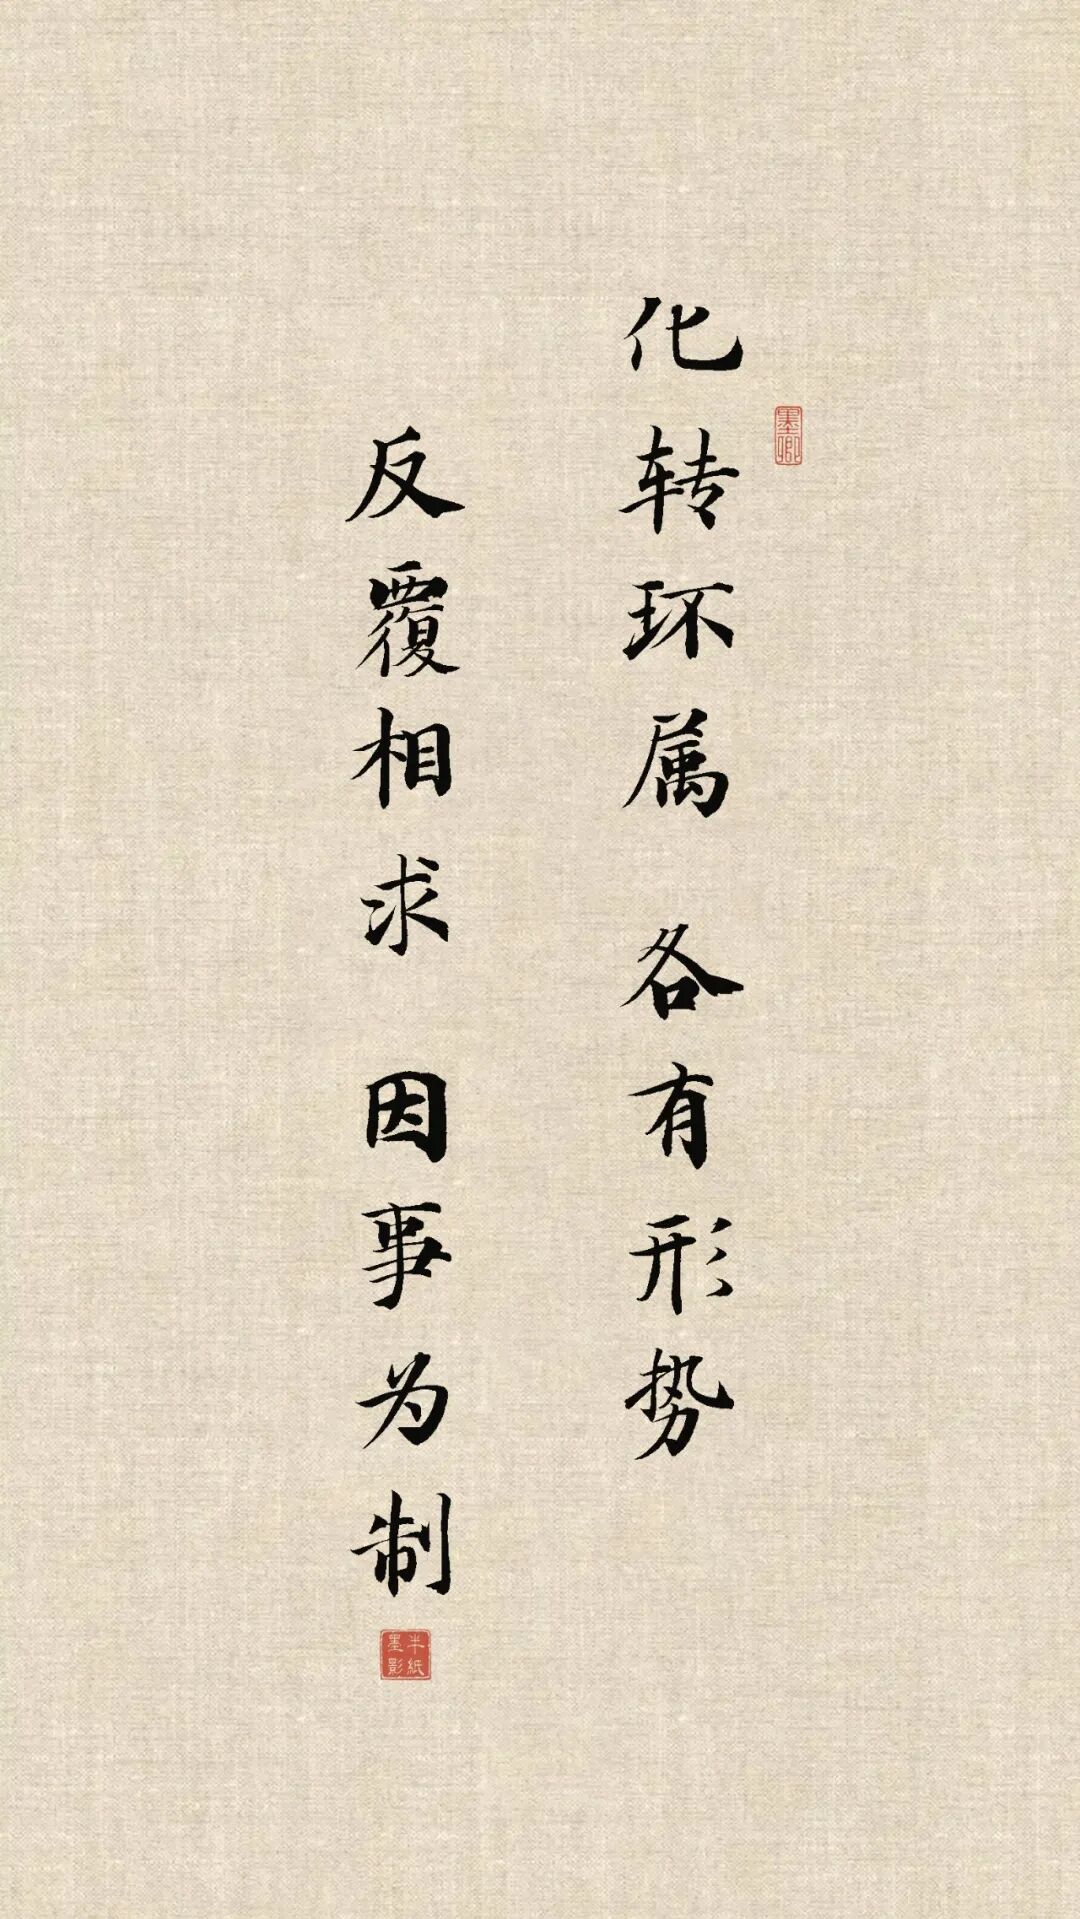 化转环属 各有形势
反覆相求 因事为制
墨卿
半纸
墨影